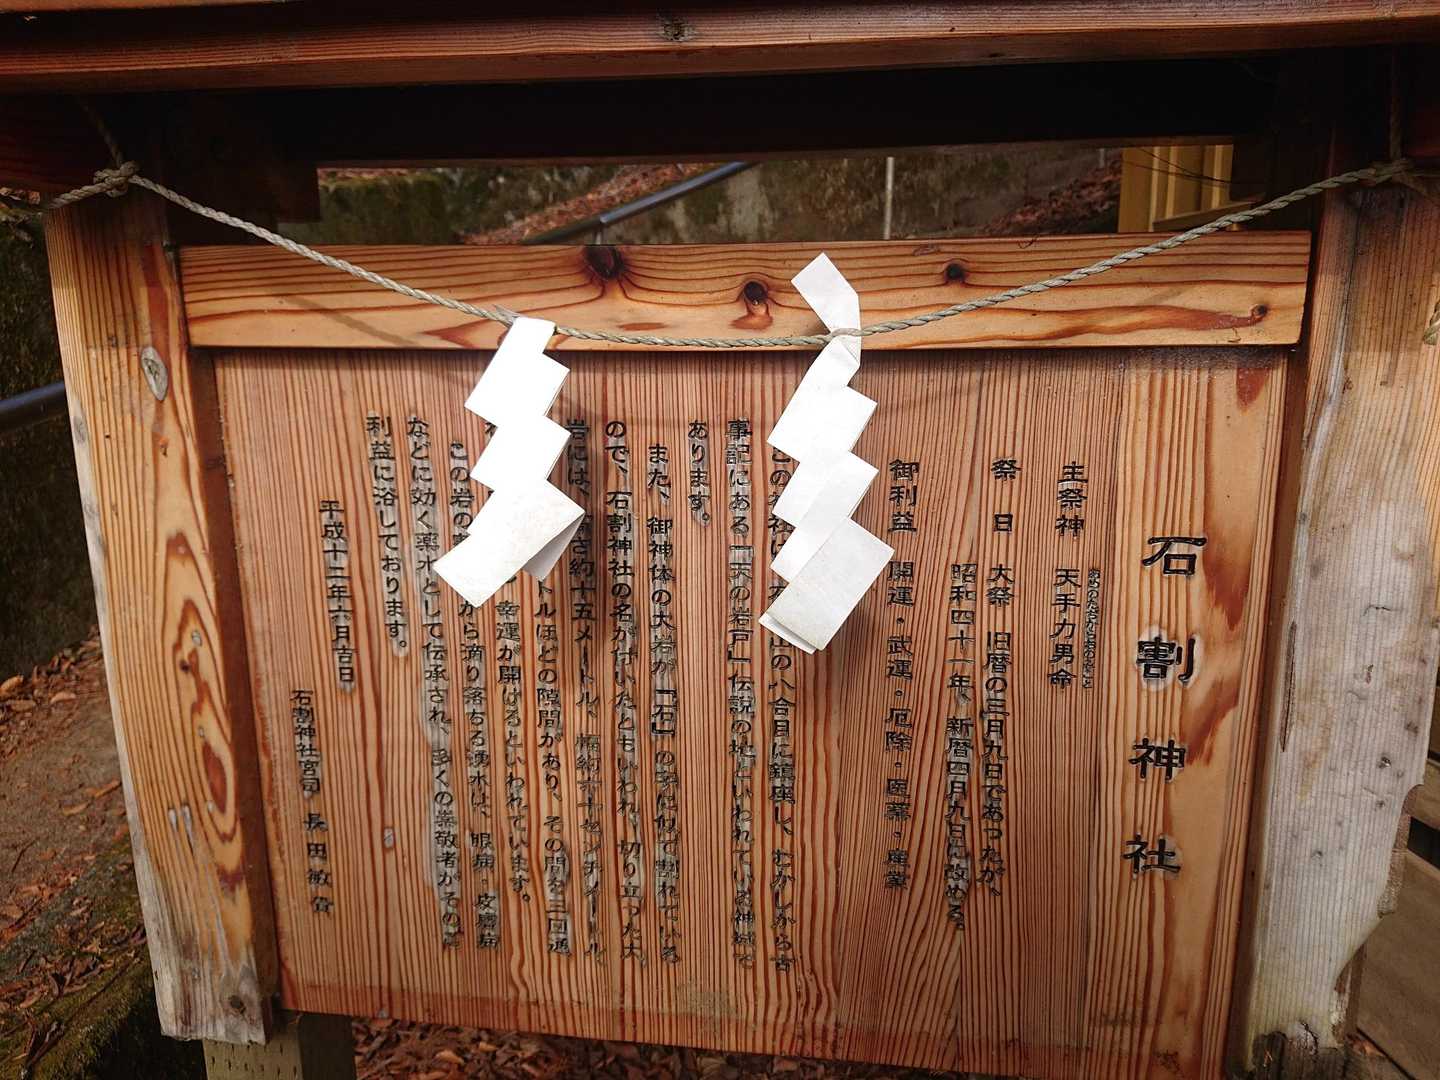 石割神社
主祭神 天手力男命
祭 日 大祭 旧暦の三月九日であったが、
昭和四十一年、新暦四月九日に改める。
御利益 開運・武運・厄除・医薬・産業
の八合目に鎮座し、むかしから古
事記にある「天の岩戸」伝説の地といわれている神域で
あります。
また、御神体の大岩が「石」の字に似て割れている
ので、石割神社の名が付いたともいわれ、切り立った大
岩には、さ約十五メートル、幅約六十センチメートル
トルほどの隙間があり、その間を三回通
幸運が開けるといわれています。
この岩のから滴り落ちる湧水は、眼病・皮膚病
などに効く薬水として伝承され、多くの崇敬者がその御
利益に浴しております。
平成十二年六月吉日
石割神社宮司 長田敏貴